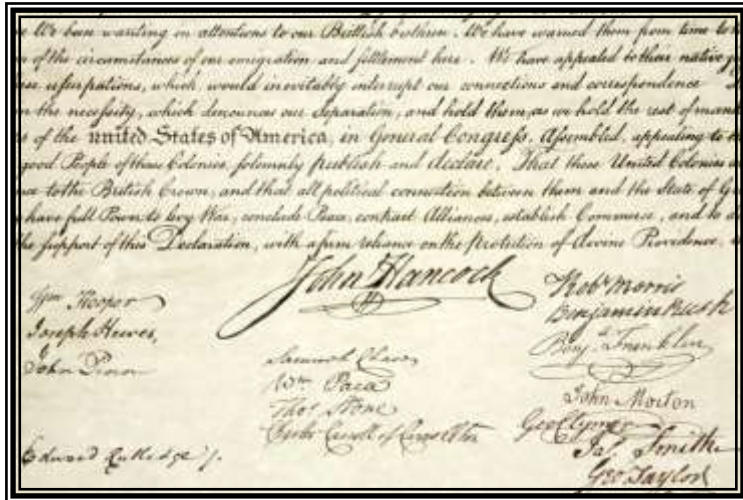 We been wanting in attentions to our Brittish brethren. We have warned them from time to
of the circumstances of our emigration and settlement here. We have appealed to their native
usurpations, which would inevitably interrupt our connections and correspondence
the necessity, which denounces our Separation, and hold them, as we hold the rest of
of the united States of America, in General Congress, Assembled, appealing to
good People of these Colonies, solemnly publish and declare, That these United Colonies
to the British Crown, and that all political connection between them and the State of
have full Power to levy War, conclude Peace, contract Alliances, establish Commerce, and to
the support of this Declaration, with a firm reliance on the Protection of divine Providence,
John Hancock
Wm Hooper
Joseph Hewes,
John Penn
Edward Rutledge
Samuel Chase
Wm Paca
Thos Stone
Charles Carroll of Carrollton
Robt Morris
Benjamin Rush
Benj. Franklin
John Morton
Geo Clymer
Jas Smith
Geo Taylor